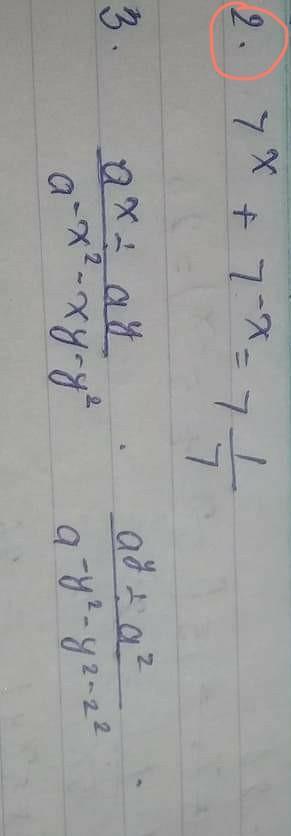 2. 7^x + 7^-x = 7 1/7
3. a^x ÷ a^y / a^-x²-xy-y² . a^y ÷ a^z / a^-y²-y²-z² .